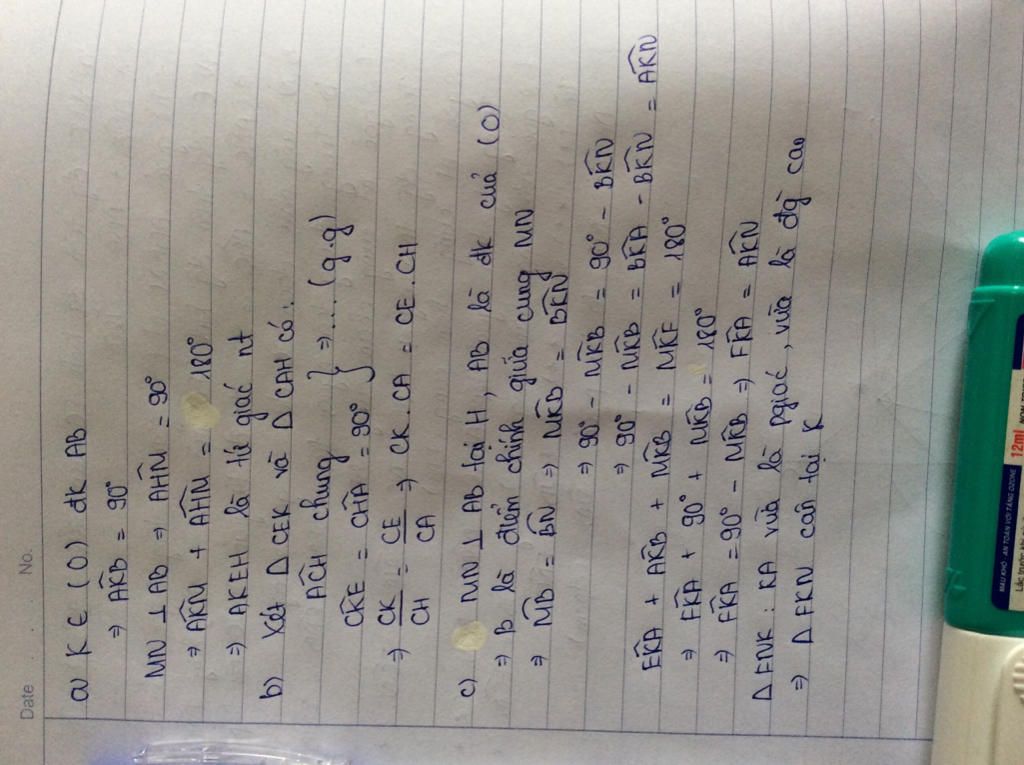 Date No.
a) K ∈ (O) đk AB
⇒ AKB̂ = 90°
MN ⊥ AB ⇒ AHM̂ = 90°
⇒ AKN̂ + AHM̂ = 180°
⇒ AKEH là tứ giác nt
b) Xét Δ CEK và Δ CAH có:
ACĤ chung
CKÊ = CHÂ = 90° } ⇒ .... (g.g)
⇒ CK/CH = CE/CA ⇒ CK.CA = CE.CH
c) MN ⊥ AB tại H, AB là đk của (O)
⇒ B là điểm chính giữa cung MN
⇒ MB̂ = BN̂ ⇒ MKB̂ = BKN̂
⇒ 90° - MKB̂ = 90° - BKN̂
⇒ 90° - MKB̂ = BKÂ - BKN̂ = AKN̂
FKÂ + AKB̂ + MKB̂ = MKF̂ = 180°
⇒ FKÂ + 90° + MKB̂ = 180°
⇒ FKÂ = 90° - MKB̂ ⇒ FKÂ = AKN̂
Δ FNK : KA vừa là pgiác, vừa là đg cao
⇒ Δ FKN cân tại K
12ml
MAU KHÔ - AN TOÀN VỚI TẦNG OZONE